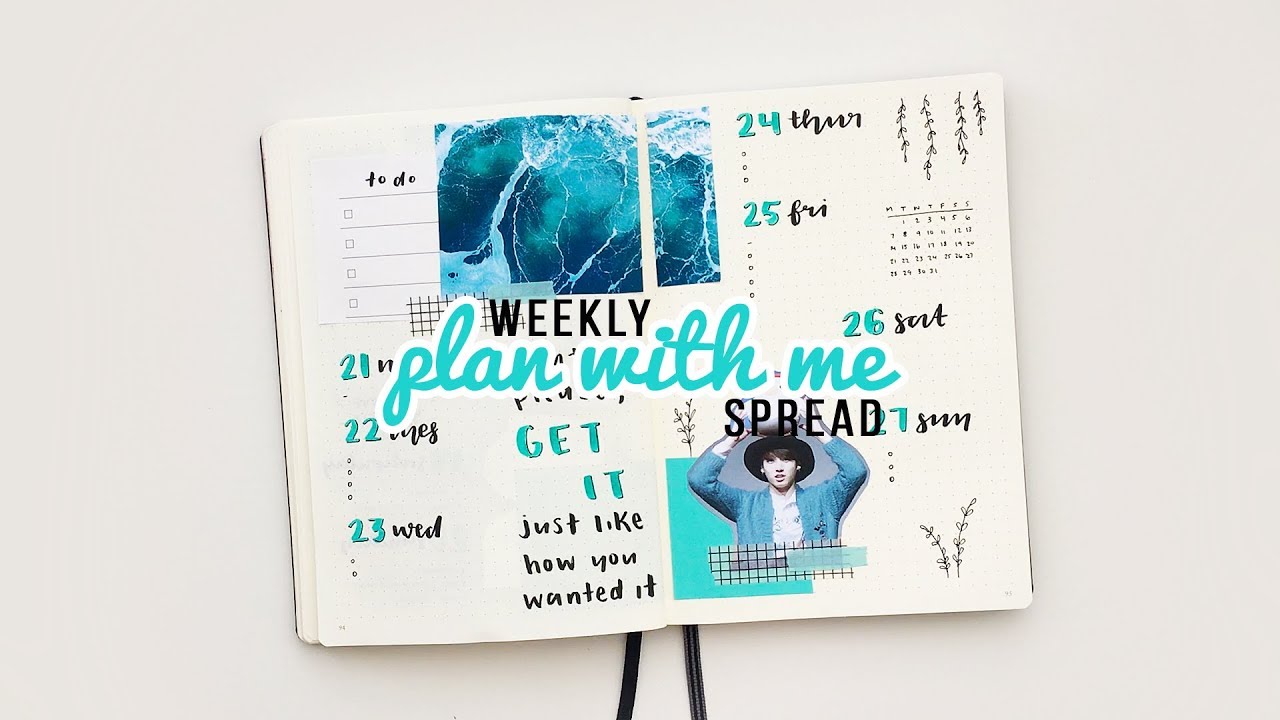 to do
WEEKLY
plan with me
SPREAD
21
22 tues
23 wed
GET
IT
just like
how you
wanted it
94
24 thur
25 fri
M T W T F S S
1 2 3 4 5 6
7 8 9 10 11 12 13
14 15 16 17 18 19 20
21 22 23 24 25 26 27
28 29 30 31
26 sat
27 sun
95